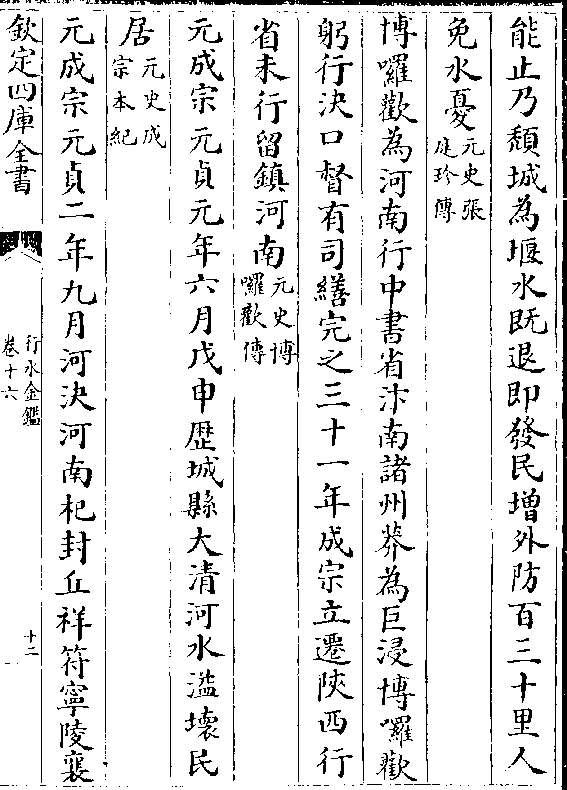 能止乃頽城為堰水既退即發民增外防百三十里人
免水憂元史張庭珍傳
博囉歡為河南行中書省汴南諸州莽為巨浸博囉歡
躬行決口督有司繕完之三十一年成宗立遷陜西行
省未行留鎮河南元史博囉歡傳
元成宗元貞元年六月戊申歴城縣大清河水溢壞民
居元史成宗本紀
元成宗元貞二年九月河決河南杞封丘祥符寧陵襄
欽定四庫全書
行水金鑑
卷十六
十二